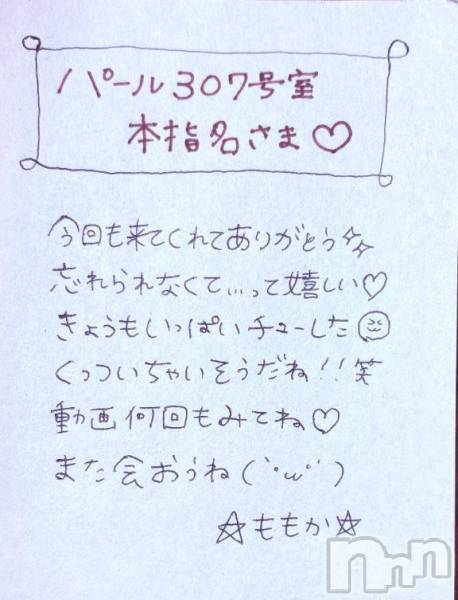 パール307号室
本指名さま♡
今回も来てくれてありがとう☆☆
忘れられなくて,,,って嬉しい♡
きょうもいっぱいチューした
くっついちゃいそうだね!!笑
動画何回もみてね♡
また会おうね(`･ω´)
☆ももか☆
nnn